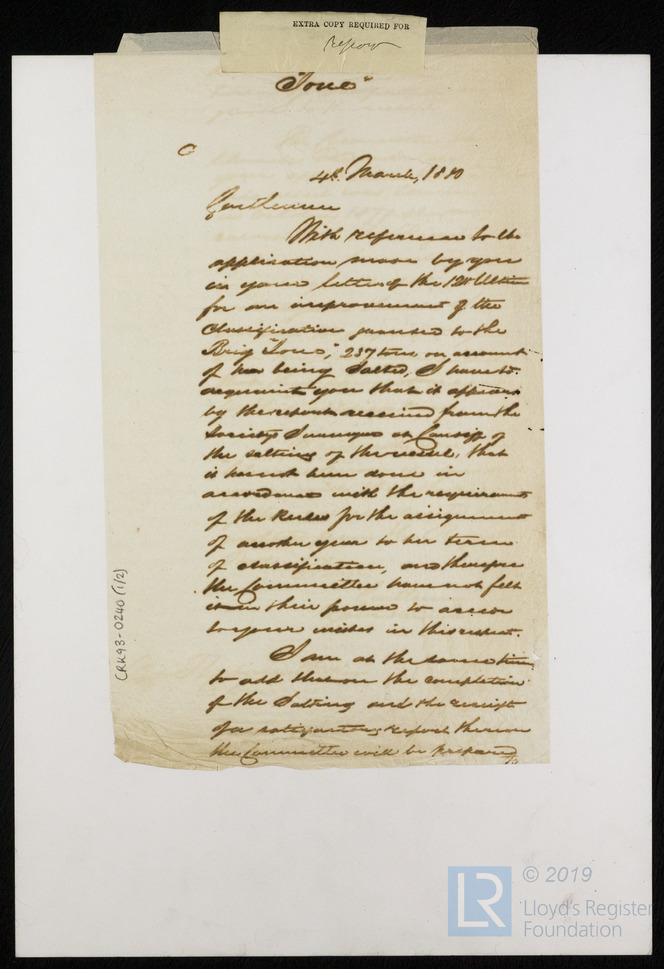 EXTRA COPY REQUIRED FOR
Report
"Ione"
4th March, 1880
Gentlemen
With reference to the
application made by you
in your letter of the 12th Ultimo
for an improvement of the
Classification granted to the
Brig "Ione," 237 tons on account
of her being Salted, I have to
acquaint you that it appears
by the report received from the
Society's Surveyors at Cardiff of
the salting of the vessel, that
it has not been done in
accordance with the requirements
of the Rules for the assignment
of another year to her term
of classification, and therefore
the Committee have not felt
it in their power to accede
to your wishes in this respect.
I am at the same time
to add that on the completion
of the Salting and the receipt
of a satisfactory report thereon
the Committee will be prepared
to
CRK93-0240 (1/2)
LR
© 2019
Lloyd's Register
Foundation